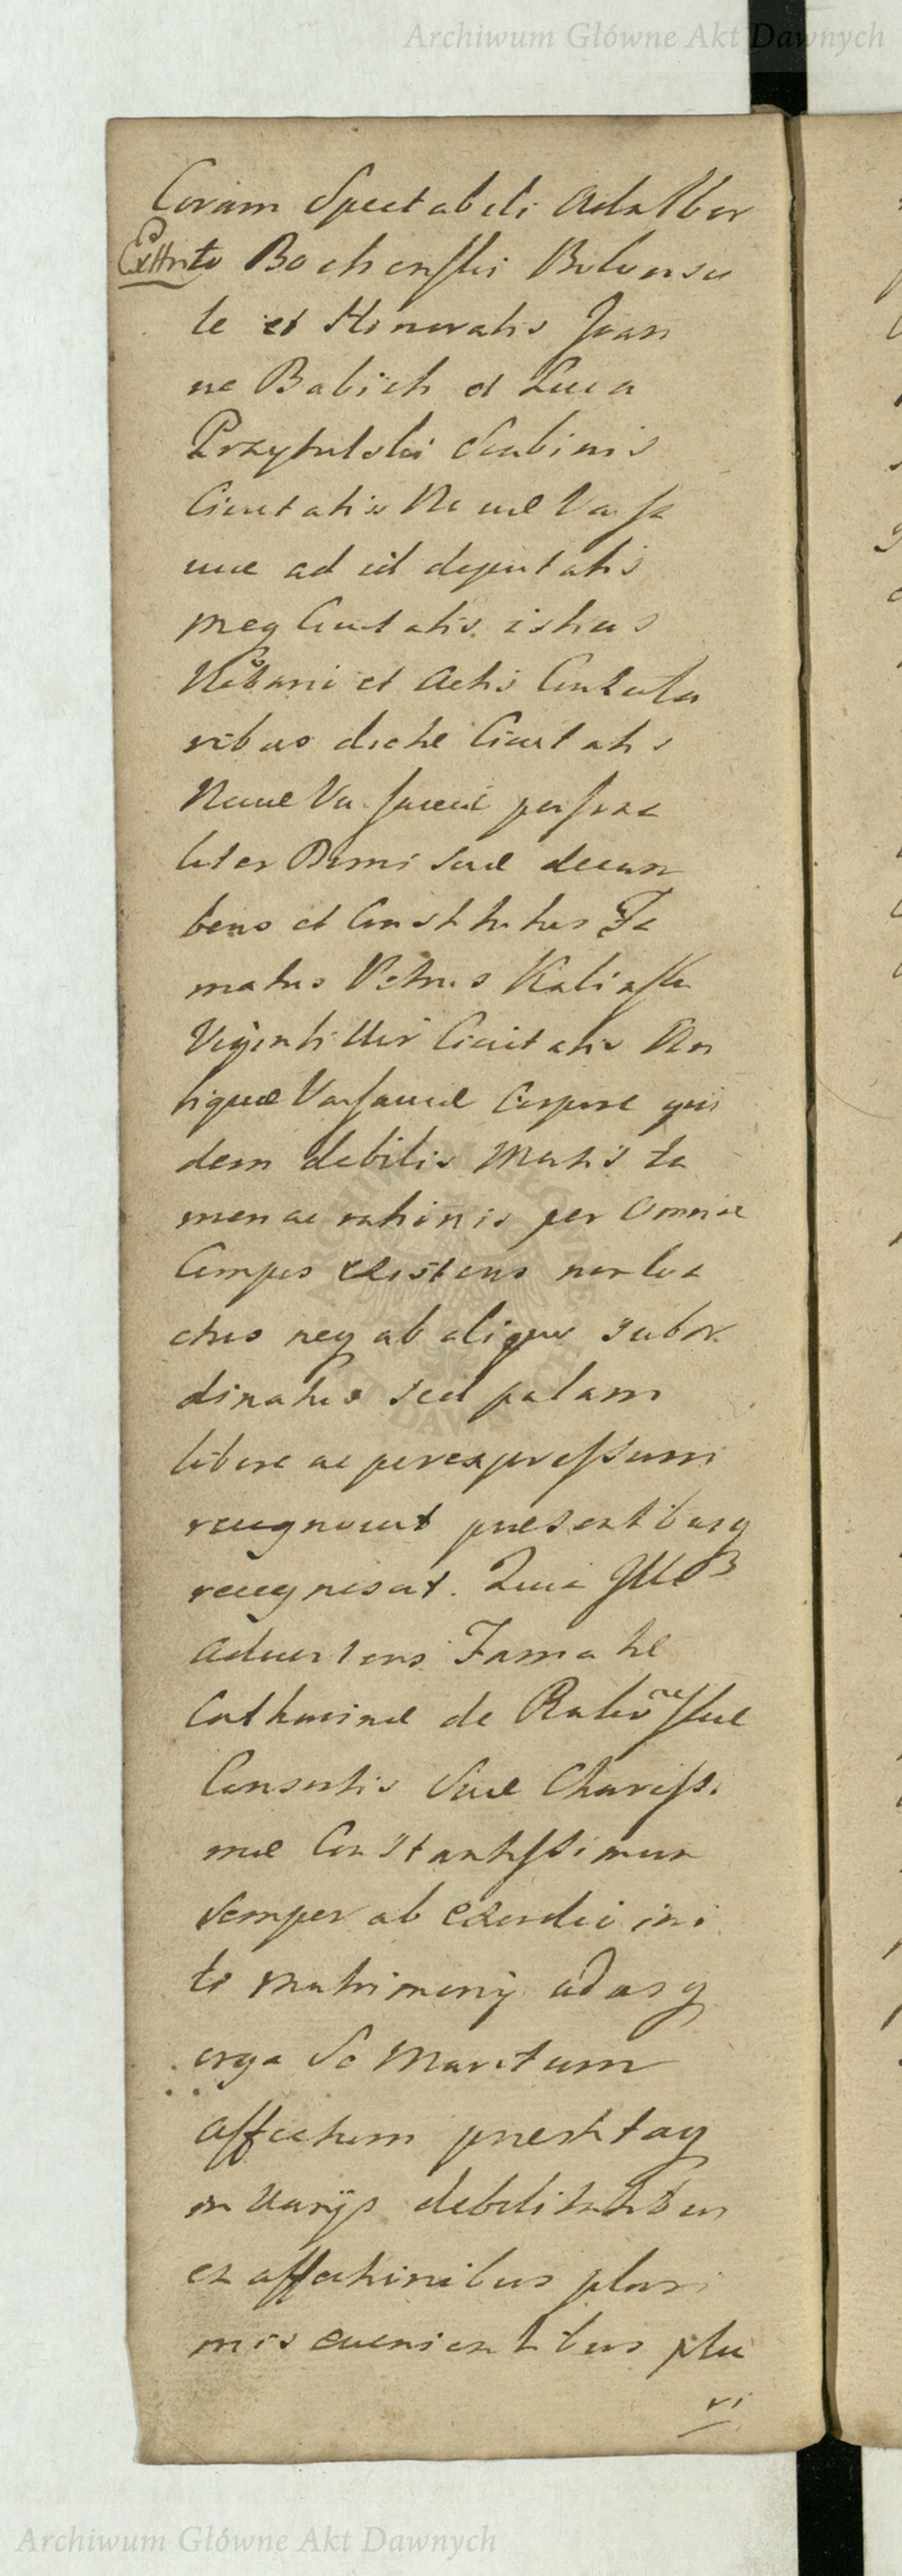 Archiwum Główne Akt Dawnych
Coram Spectabili Adalber
Exttrto Bochenski Proconsu
le et Honoratis Joan
ne Babich et Luca
Przytulski Scabinis
Civitatis Novæ Varsa
viæ ad id deputatis
meq Civitatis istius
Notario et Actis Consula
ribus dictæ Civitatis
Novæ Varsaviæ persona
liter Domi suæ decum
bens et Constitutus Fa
matus Petrus Kaliński
Vigintivir Civitatis An
tiquæ Varsaviæ Corpore qui
dem debilis Mentis ta
men ac rationis per omnia
Compos existens non coa
ctus neq ab aliquo subor
dinatus sed palam
libere ac per expressum
recognovit præsentibusq
recognoscit. Quia
advertens Famatæ
Catharinæ de
Consortis suæ Charissi
mæ Constantissimum
semper ab exordio ini
ti Matrimonij adusq
erga se Maritum
affectum præstitaq
in varijs debilitatibus
et affectionibus pluri
mis evenientibus plu
ri
Archiwum Główne Akt Dawnych